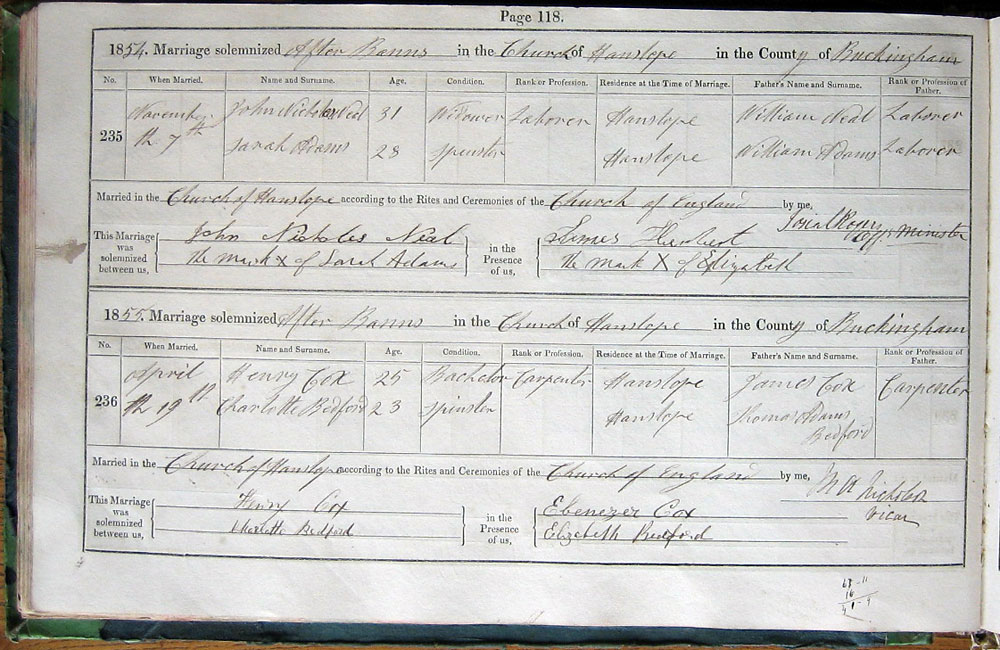 Page 118.
1854. Marriage solemnized After Banns in the Church of Hanslope in the County of Buckingham
No. When Married. Name and Surname. Age. Condition. Rank or Profession. Residence at the Time of Marriage. Father's Name and Surname. Rank or Profession of Father.
235 November John Nicholes Neal 31 Widower Laborer Hanslope William Neal Laborer
th 7th Sarah Adams 28 Spinster Hanslope William Adams Laborer
Married in the Church of Hanslope according to the Rites and Ceremonies of the Church of England by me,
Minister
This Marriage was solemnized between us, John Nicholes Neal in the Presence of us, James Herbert
the mark X of Sarah Adams the mark X of Elizabeth
1855. Marriage solemnized After Banns in the Church of Hanslope in the County of Buckingham
No. When Married. Name and Surname. Age. Condition. Rank or Profession. Residence at the Time of Marriage. Father's Name and Surname. Rank or Profession of Father.
236 April Henry Cox 25 Bachelor Carpenter Hanslope James Cox Carpenter
th 19th Charlotte Bedford 23 Spinster Hanslope Thomas Adams
Bedford
Married in the Church of Hanslope according to the Rites and Ceremonies of the Church of England by me, M A Nicholson
Vicar
This Marriage was solemnized between us, Henry Cox in the Presence of us, Ebenezer Cox
Charlotte Bedford Elizabeth Bedford